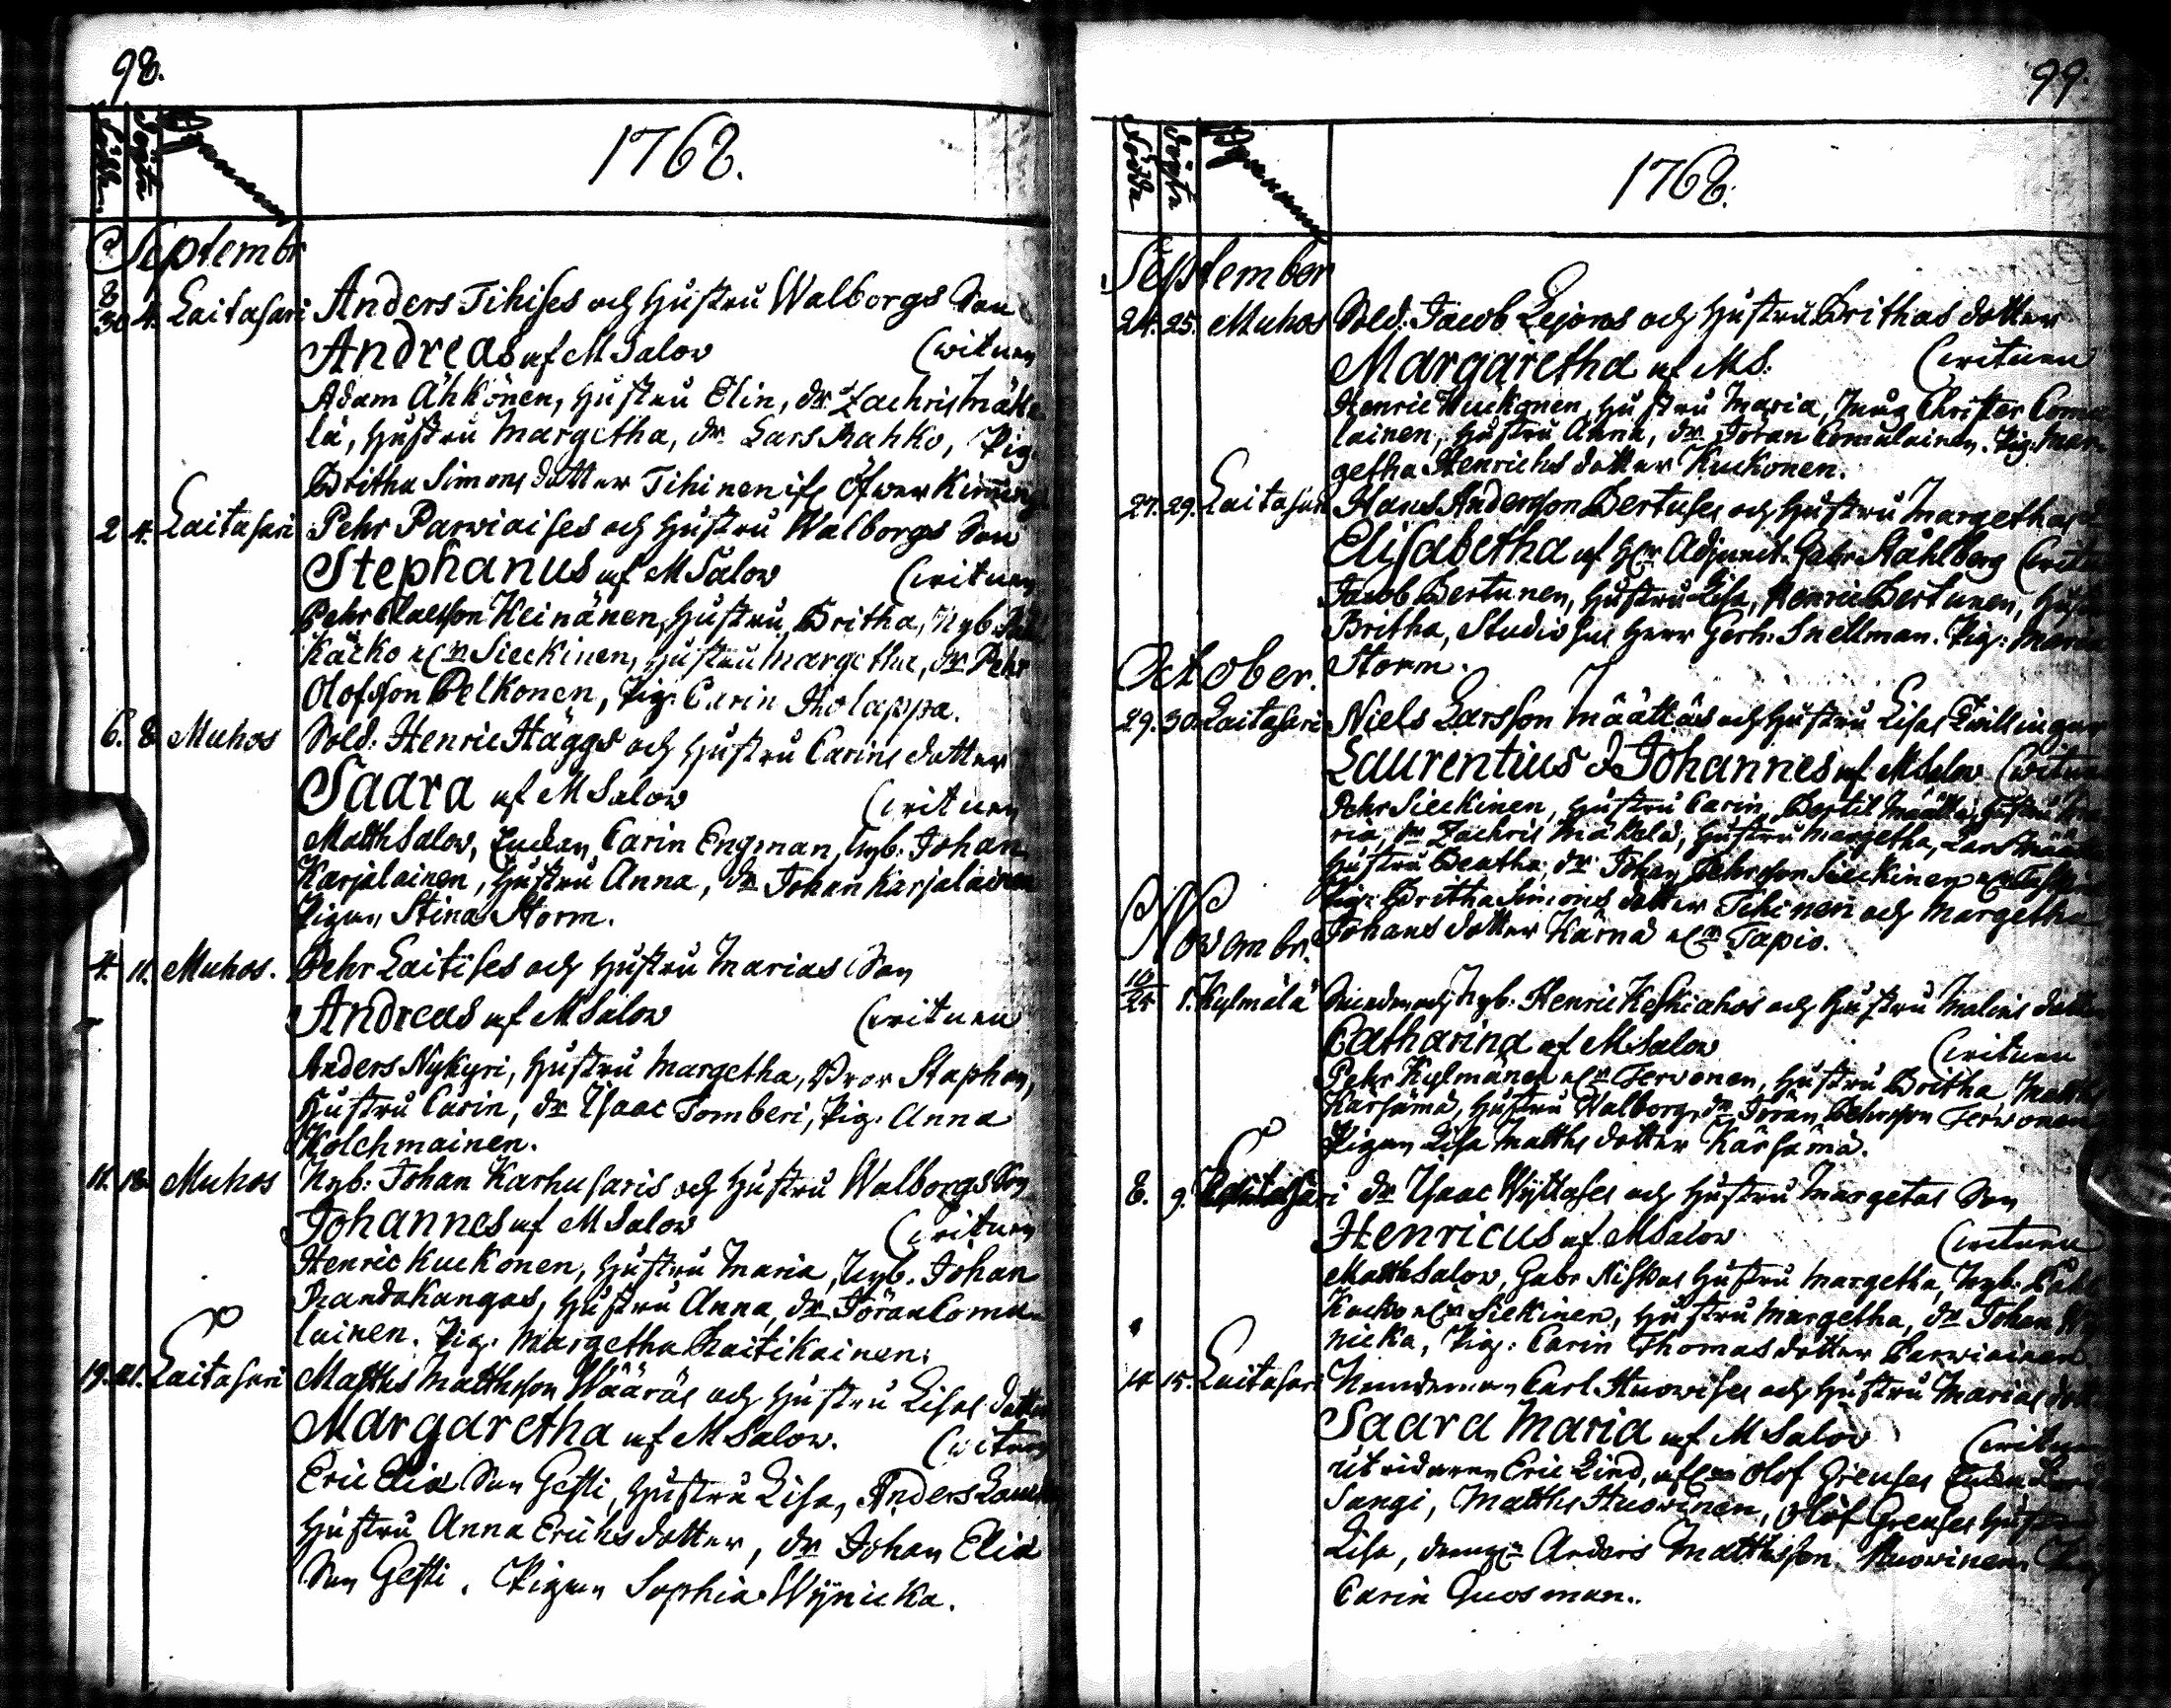 98.
Födde Döpta Byarnas namn
1768.
Septembr
8/30 4. Laitasari Anders Tihises och Hustru Walborgs Son
Andreas af M Salov (vitnen
Adam Ähkönen, Hustru Elin, dr. Zachris Mäke
lä, Hustru Margetha, dr. Lars Rahko, Pig.
Britha Simons dotter Tihinen ifr. Öfwer Kiiming
2 4. Laitasari Pehr Parwiaises och Hustru Walborgs Son
Stephanus af M Salov (vitnen
Pehr Claesson Keinänen, Hustru Britha, Nyb.
Käcko eln Sieckinen, Hustru Margetha, dr Pehr
Olofsson Pelkonen, Pig. Carin Holappa.
6. 8 Muhos Sold: Henric Häggs och Hustru Carins dotter
Saara af M Salov (vitnen
Matth Salov, Enckan Carin Engman, Nyb. Johan
Karjalainen, Hustru Anna, dr Johan Karjalainen
Pigan Stina Storm.
4. 11. Muhos. Pehr Laitises och Hustru Marias Son
Andreas af M Salov (vitnen
Anders Nykyri, Hustru Margetha, Bror Staphan,
Hustru Carin, dr Isaac Tomberi, Pig. Anna
Kolchmainen.
11. 18. Muhos Nyb: Johan Karhusaris och Hustru Walborgs Son
Johannes af M Salov (vitnen
Henric Kuckonen, Hustru Maria, Nyb. Johan
Randakangas, Hustru Anna, dr Jöran Comu
lainen. Pig: Margetha Raitikainen.
19. 21. Laitasari Matths Matthsson Wääräs och Hustru Lisas dotter
Margaretha af M Salov. (vitnen
Eric Eliæ Son Gesti, Hustru Lisa, Anders
Hustru Anna Erichs dotter, dr Johan Eliæ
Son Gesti. Pigan Sophia Wynicka.
99.
Födde Döpta Byarnas namn
1768.
September
24. 25. Muhos Sold: Jacob Lejons och Hustru Brithas dotter
Margaretha af MS. (vitnen
Henric Kuckonen, Hustru Maria, Christer Comu
lainen, Hustru Anna, dr Jöran Comulainen. Pig. Mar
getha Henrichs dotter Kuckonen.
27. 29. Laitasari Hans Andersson Bertuses och Hustru Margethas
Elisabetha af Hr Adjunct. Gabr. Ståhlberg (vitn
Jacob Bertunen, Hustru Lisa, Henric Bertunen, Hust
Britha, Studiosus Herr Gerh: Snellman. Pig: Maria
Storm.
October.
29. 30 Laitasari Niels Larsson Määttäs och Hustru Lisas Twillingar
Laurentius & Johannes af M Salov (vitnen
Pehr Sieckinen, Hustru Carin, Bertil Määttä, Hustru Ma
ria, dr Zachris Mäkelä, Hustru Margetha, Lars Määttä
Hustru Beatha, dr Johan Pehrsson Sieckinen
Pig: Britha Simons dotter Tihinen och Margetha
Johans dotter Kärnä eln Tapio.
Novembr.
10/24 1. Kylmälä och Nyb: Henric Keskiahos och Hustru Malins dotter
Catharina af M Salov (vitnen
Pehr Kylmänen eln Tervonen, Hustru Britha, Matths
Karsämä, Hustru Walborg, dr Jöran Pehrsson Terwonen
Pigan Lisa Matths dotter Kärsämä.
8. 9. Laitasari dr Isaac Wyttases och Hustru Margetas Son
Henricus af M Salov (vitnen
Matth Salov, Gabr Niskas Hustru Margetha, Nyb: Pähl
Kacko eln Siekinen, Hustru Margetha, dr Johan Wy
nicka, Pig: Carin Thomas dotter Parwiainen.
14 15. Laitasari Nemdeman Carl Huowises och Hustru Marias dott
Saara Maria af M Salov (vitnen
Utridaren Eric Lind, Olof Grenses
Sangi, Matths Huovinen, Olof Grenses Hustru
Lisa, drengen Anders Matthsson Huovinen
Carin Quosman.